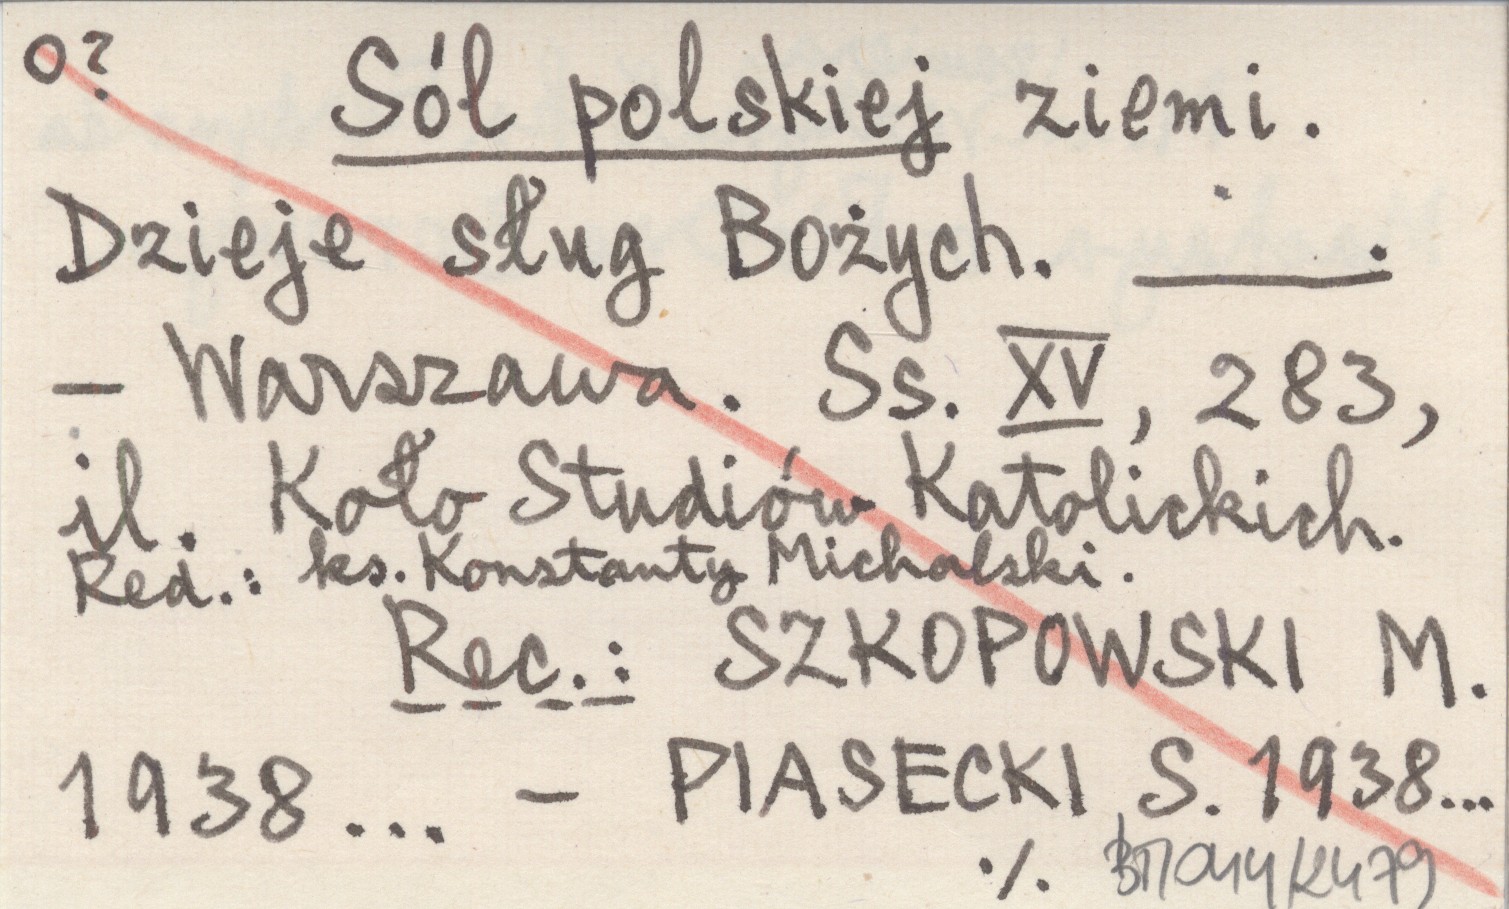 o?
Sól polskiej ziemi.
Dzieje sług Bożych. ______.
– Warszawa. Ss. XV, 283,
il. Koło Studiów Katolickich.
Red.: ks. Konstanty Michalski.
Rec.: SZKOPOWSKI M.
1938... – PIASECKI S. 1938...
./.